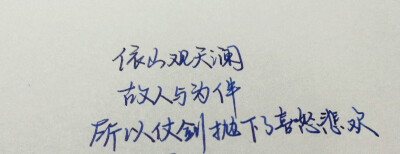 依山观天澜
故人与为伴
所以仗剑抛下了喜怒悲欢